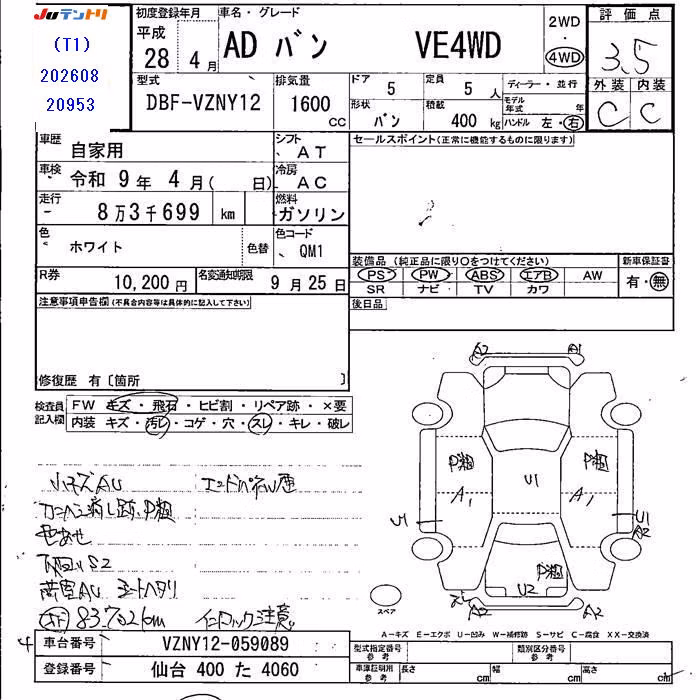 JUテントリ
(T1)
202608
20953
初度登録年月
平成
28年 4月
車名・グレード
AD バン VE4WD
2WD
・
4WD
評価点
3.5
外装 内装
C C
型式
DBF-VZNY12
排気量
1600
CC
ドア
5
定員
5人
形状
バン
積載
400 kg
ディーラー・並行
モデル年式 年
ハンドル 左・右
車歴
自家用
シフト
AT
車検
令和 9年 4月( 日)
冷房
AC
走行
8万3千699 km
燃料
ガソリン
色
ホワイト
色替
色コード
QM1
R券
10,200円
名変通知期限
9月25日
セールスポイント(正常に機能するものに限ります)
装備品 (純正品に限り○をつけてください)
PS PW ABS エアB AW
SR ナビ TV カワ
新車保証書
有・無
後日品
注意事項申告欄(不具合内容等は具体的に記入して下さい)
修復歴 有〔箇所 〕
検査員記入欄
FW キズ・飛石・ヒビ割・リペア跡・×要
内装 キズ・汚レ・コゲ・穴・スレ・キレ・破レ
小キズAU
色あせ
83,702km
A2 A1
P粗 P粗
A1 U1 A1
P粗
U2
A2 A2
スペア
A-キズ E-エクボ U-凹み W-補修跡 S-サビ C-腐食 XX-交換済
車台番号
VZNY12-059089
登録番号
仙台 400 た 4060
型式指定番号
参考
類別区分番号
参考
車庫証明用
参考
長さ cm 幅 cm 高さ cm